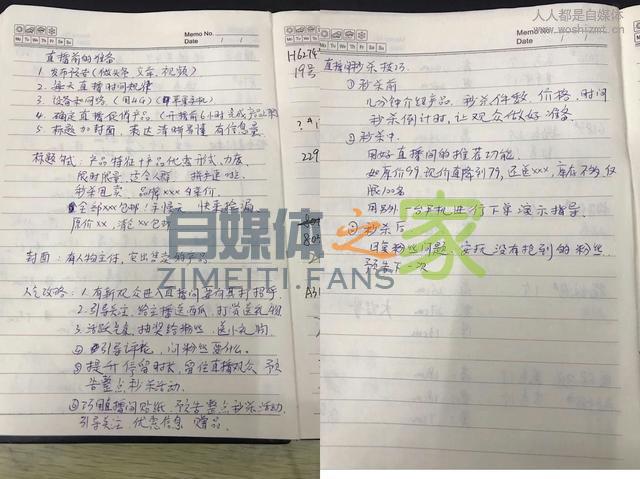 人人都是自媒体
www.woshizmt.cn
Memo No.
Date / /
Mo Tu We Th Fr Sa Su
直播前的准备
1. 发布预告(微头条 文章、视频)
2. 每天直播时间规律
3. 设备和网络 (用4G)
4. 确定直播促销产品 (开播前6小时完成产品
5. 标题加封面, 表达清晰易懂 有信息量
标题方式: 产品特征+产品优惠形式、力度
限时限量 适合人群
秒杀甩卖、品牌xxx
全部xxx包邮! 快来捡漏
原价xx, 清仓xx包邮
封面: 有人物主体, 突出售卖的产品
人气攻略: 1. 有新观众进入直播间要向其打招呼
2. 引导关注, 给主播送西瓜, 打赏送礼物
3. 活跃气氛, 抽奖给粉丝, 送小礼物
① 引导评论, 问粉丝要什么。
② 提升停留时长, 留住直播观众, 预
告整点秒杀活动.
③ 巧用直播间贴纸, 预告整点秒杀活动,
引导关注、优惠信息、赠品.
H6274
19号
229
Memo No.
Date / /
Mo Tu We Th Fr Sa Su
直播间秒杀技巧.
① 秒杀前
几分钟介绍产品, 秒杀件数、价格、时间
秒杀倒计时, 让观众做好准备
② 秒杀中
用好直播间的推荐功能.
如原价99, 现价直降到79, 还送xxx, 库存不多, 仅
限100名
用另外一台手机进行下单演示指导.
③ 秒杀后
回复粉丝问题, 安抚没有抢到的粉丝,
预告下一次
自媒体之家
ZIMEITI.FANS